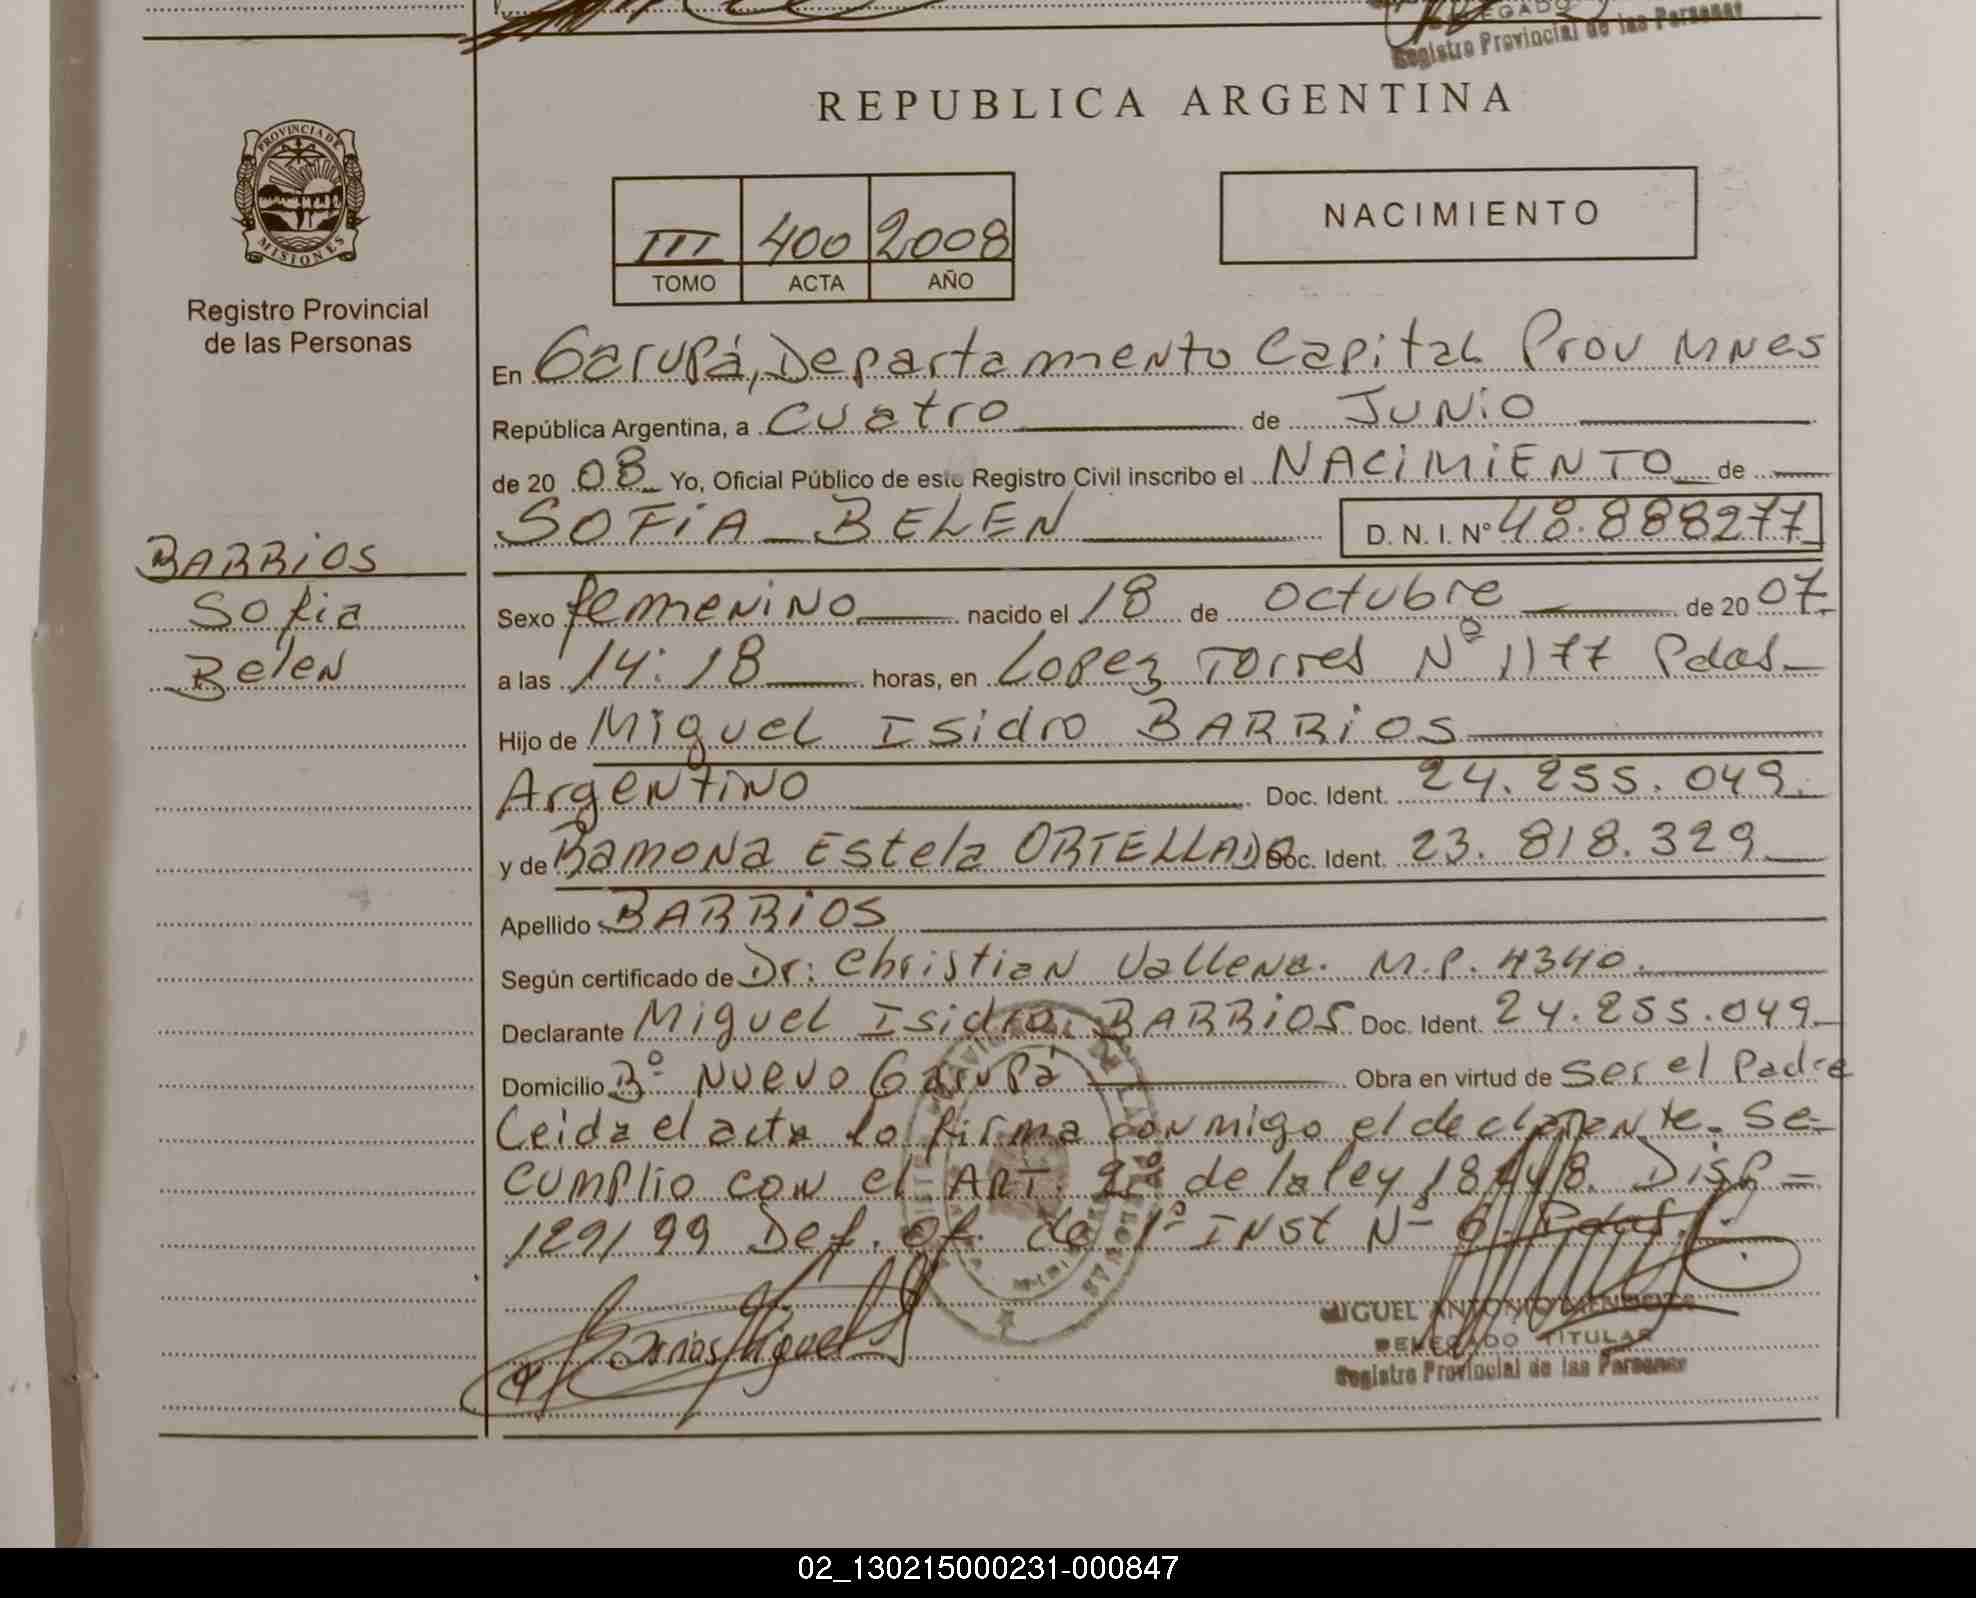 DELEGADO
Registro Provincial de las Personas
REPUBLICA ARGENTINA
PROVINCIA DE
MISIONES
Registro Provincial
de las Personas
III 400 2008
TOMO ACTA AÑO
NACIMIENTO
En Garupá, Departamento Capital Prov Mnes
República Argentina, a cuatro de Junio
de 20 08 Yo, Oficial Público de este Registro Civil inscribo el NACIMIENTO de
SOFIA BELEN D. N. I. Nº 48.888277
BARRIOS
Sofia
Belen
Sexo femenino nacido el 18 de octubre de 20 07
a las 14:18 horas, en Lopez Torres Nº 1177 Pdas
Hijo de Miguel Isidro BARRIOS
Argentino Doc. Ident. 24.255.049.
y de Ramona Estela ORTELLADO Doc. Ident. 23.818.329
Apellido BARRIOS
Según certificado de Dr: Christian Vallena. M.P. 4340.
Declarante Miguel Isidro BARRIOS Doc. Ident. 24.255.049
Domicilio Bº Nuevo Garupá Obra en virtud de ser el Padre
Leida el acta lo firma conmigo el declarante. Se
cumplio con el ART. 2º de la ley 18448. Disp =
129/99 Def. of. de 1º INst Nº 6 Pdas.
Barrios Miguel
MIGUEL ANTONIO MENDOZA
DELEGADO TITULAR
Registro Provincial de las Personas
02_130215000231-000847